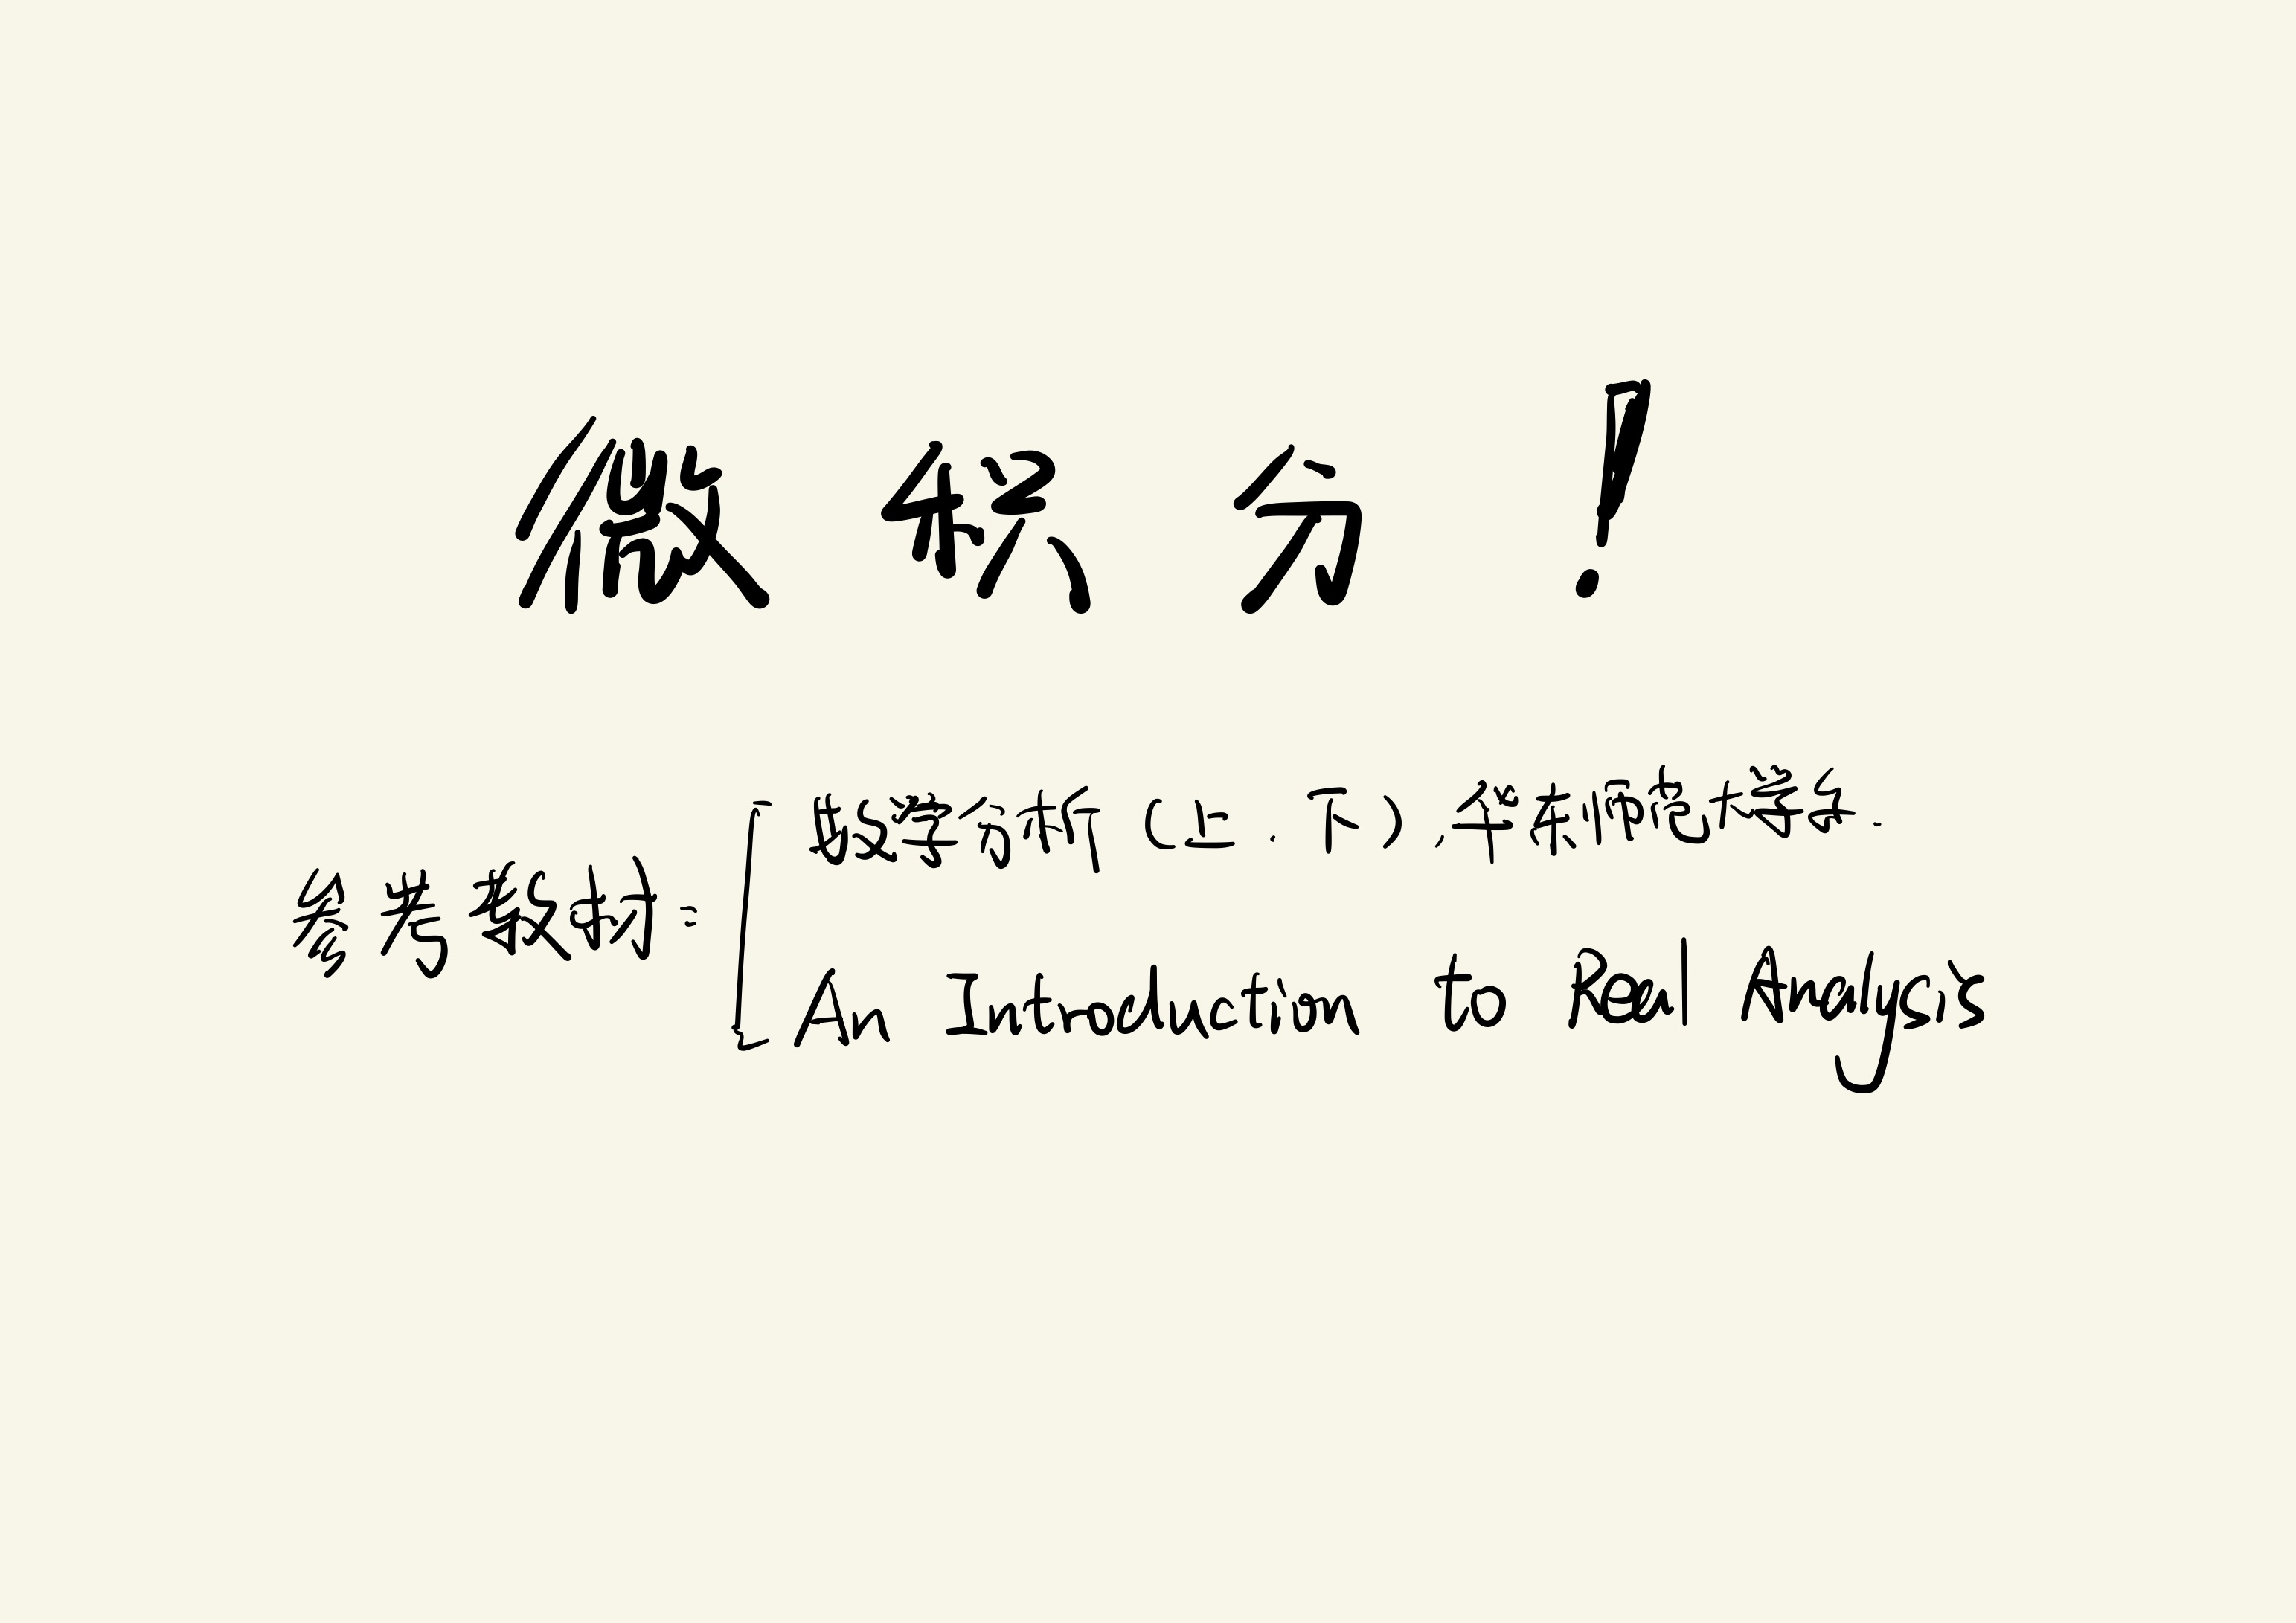 微积分！
数学分析（上．下），华东师范大学 ．
参考教材：
An Introduction to Real Analysis